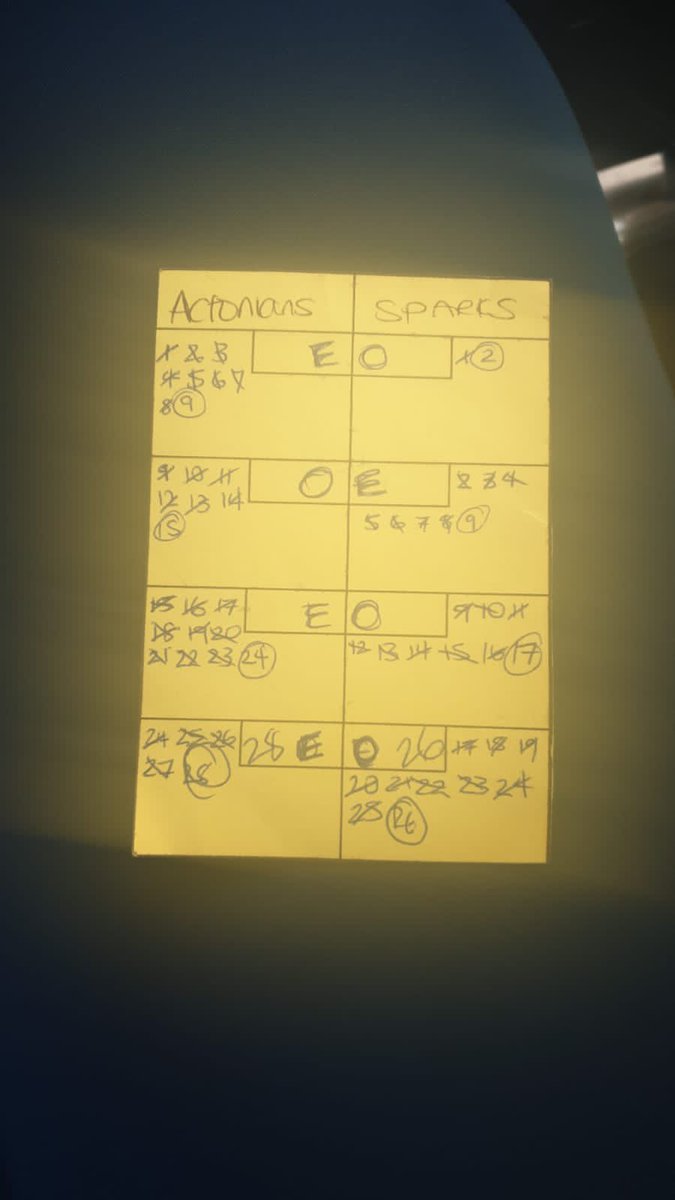 Actonians SPARKS
1 2 3 E O 1 2
4 5 6 7
8 9
9 10 11 O E 2 3 4
12 13 14 5 6 7 8 9
15
15 16 17 E O 9 10 11
18 19 20 12 13 14 15 16 17
21 22 23 24
24 25 26 28 E O 26 17 18 19
27 28 20 21 22 23 24
25 26